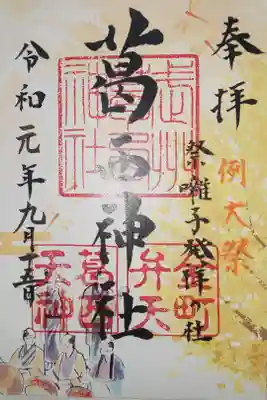 奉拝
例大祭
祭囃子発祥社
葛西神社
令和元年九月十五日
金町弁天
葛西天神